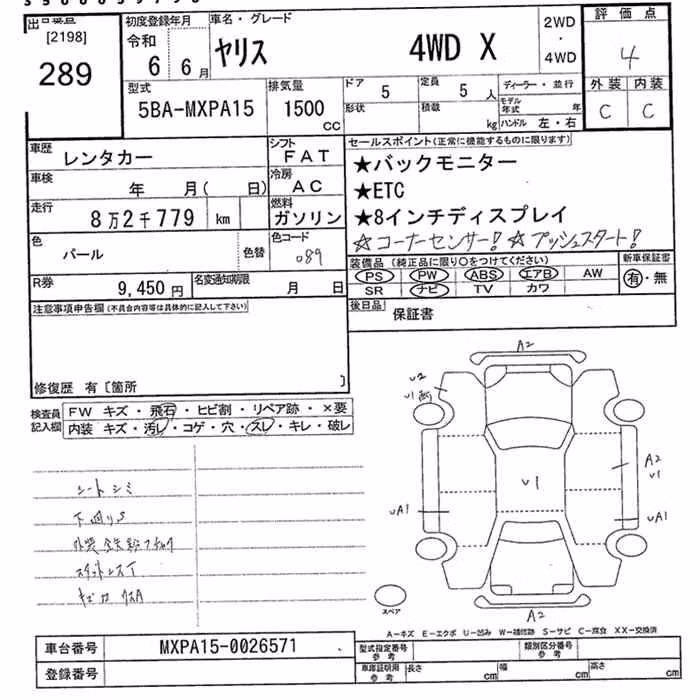 [2198]
289
初度登録年月
令和
6 6月
車名・グレード
ヤリス 4WD X
2WD
・
4WD
評価点
4
型式
5BA-MXPA15
排気量
1500
cc
ドア 5
定員 5 人
形状
積載 kg
ディーラー・並行
モデル年式 年
ハンドル 左・右
外装 内装
C C
車歴 レンタカー
シフト FAT
車検 年 月( 日)
冷房 AC
走行 8万2千779 km
燃料 ガソリン
色 パール 色替
色コード 089
R券 9,450円
名変通知期限 月 日
セールスポイント(正常に機能するものに限ります)
★バックモニター
★ETC
★8インチディスプレイ
☆コーナーセンサー! ☆プッシュスタート!
装備品(純正品に限り○をつけてください)
新車保証書
PS PW ABS エアB AW
SR ナビ TV カワ
有・無
後日品 保証書
注意事項申告欄(不具合内容等は具体的に記入して下さい)
修復歴 有〔箇所 〕
検査員記入欄
FW キズ・飛石・ヒビ割・リペア跡・×要
内装 キズ・汚レ・コゲ・穴・スレ・キレ・破レ
シートシミ
下廻りS
A2
U2
U1
U1
A2
U1
UA1
UA1
A2
スペア
A-キズ E-エクボ U-凹み W-補修跡 S-サビ C-腐食 XX-交換済
車台番号 MXPA15-0026571
登録番号
型式指定番号 参考
類別区分番号 参考
車庫証明用 参考
長さ cm
幅 cm
高さ cm